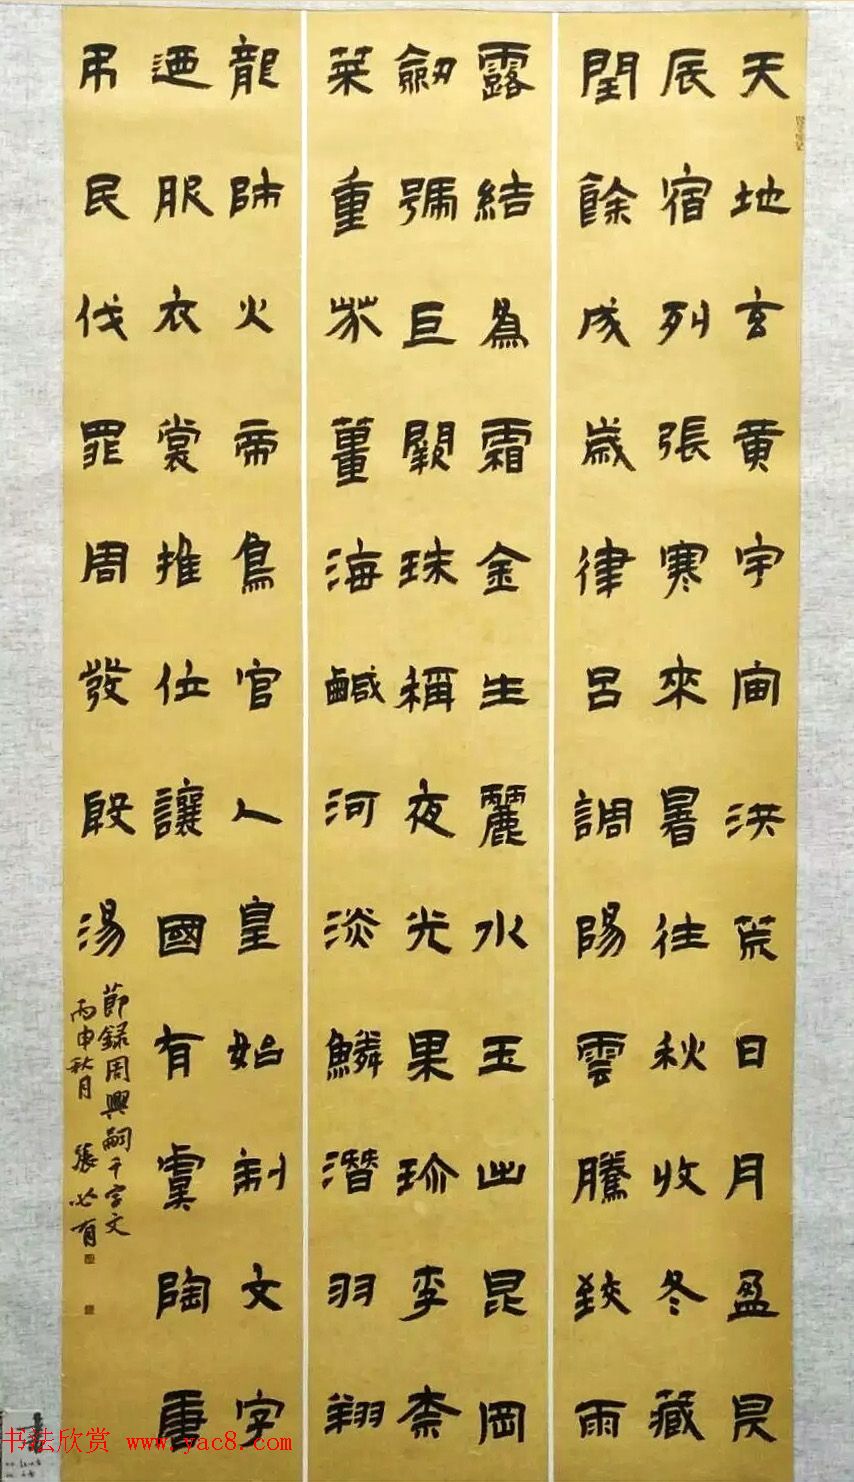 天地玄黄宇宙洪荒日月盈昃
辰宿列張寒來暑往秋收冬藏
閏餘成歲律呂調陽雲騰致雨
露結為霜金生麗水玉出昆岡
劍號巨闕珠稱夜光果珍李柰
菜重芥薑海鹹河淡鱗潛羽翔
龍師火帝鳥官人皇始制文字
迺服衣裳推位讓國有虞陶唐
吊民伐罪周發殷湯
節録周興嗣千字文
丙申秋月 張必有
书法欣赏 www.yac8.com